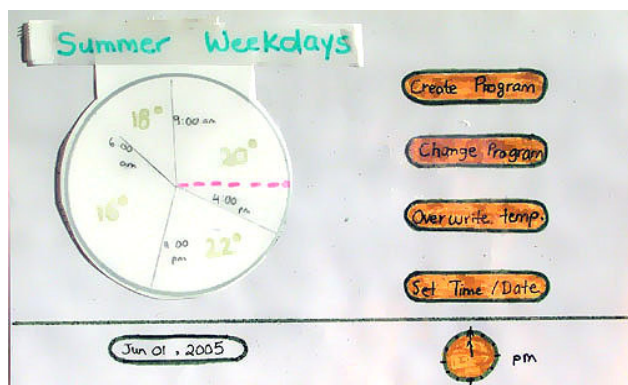 Summer Weekdays
18°
9:00 am
20°
6:00
am
4:00
pm
16°
pm
22°
Create Program
Change Program
Overwrite temp.
Set Time / Date
Jun 01, 2005
pm